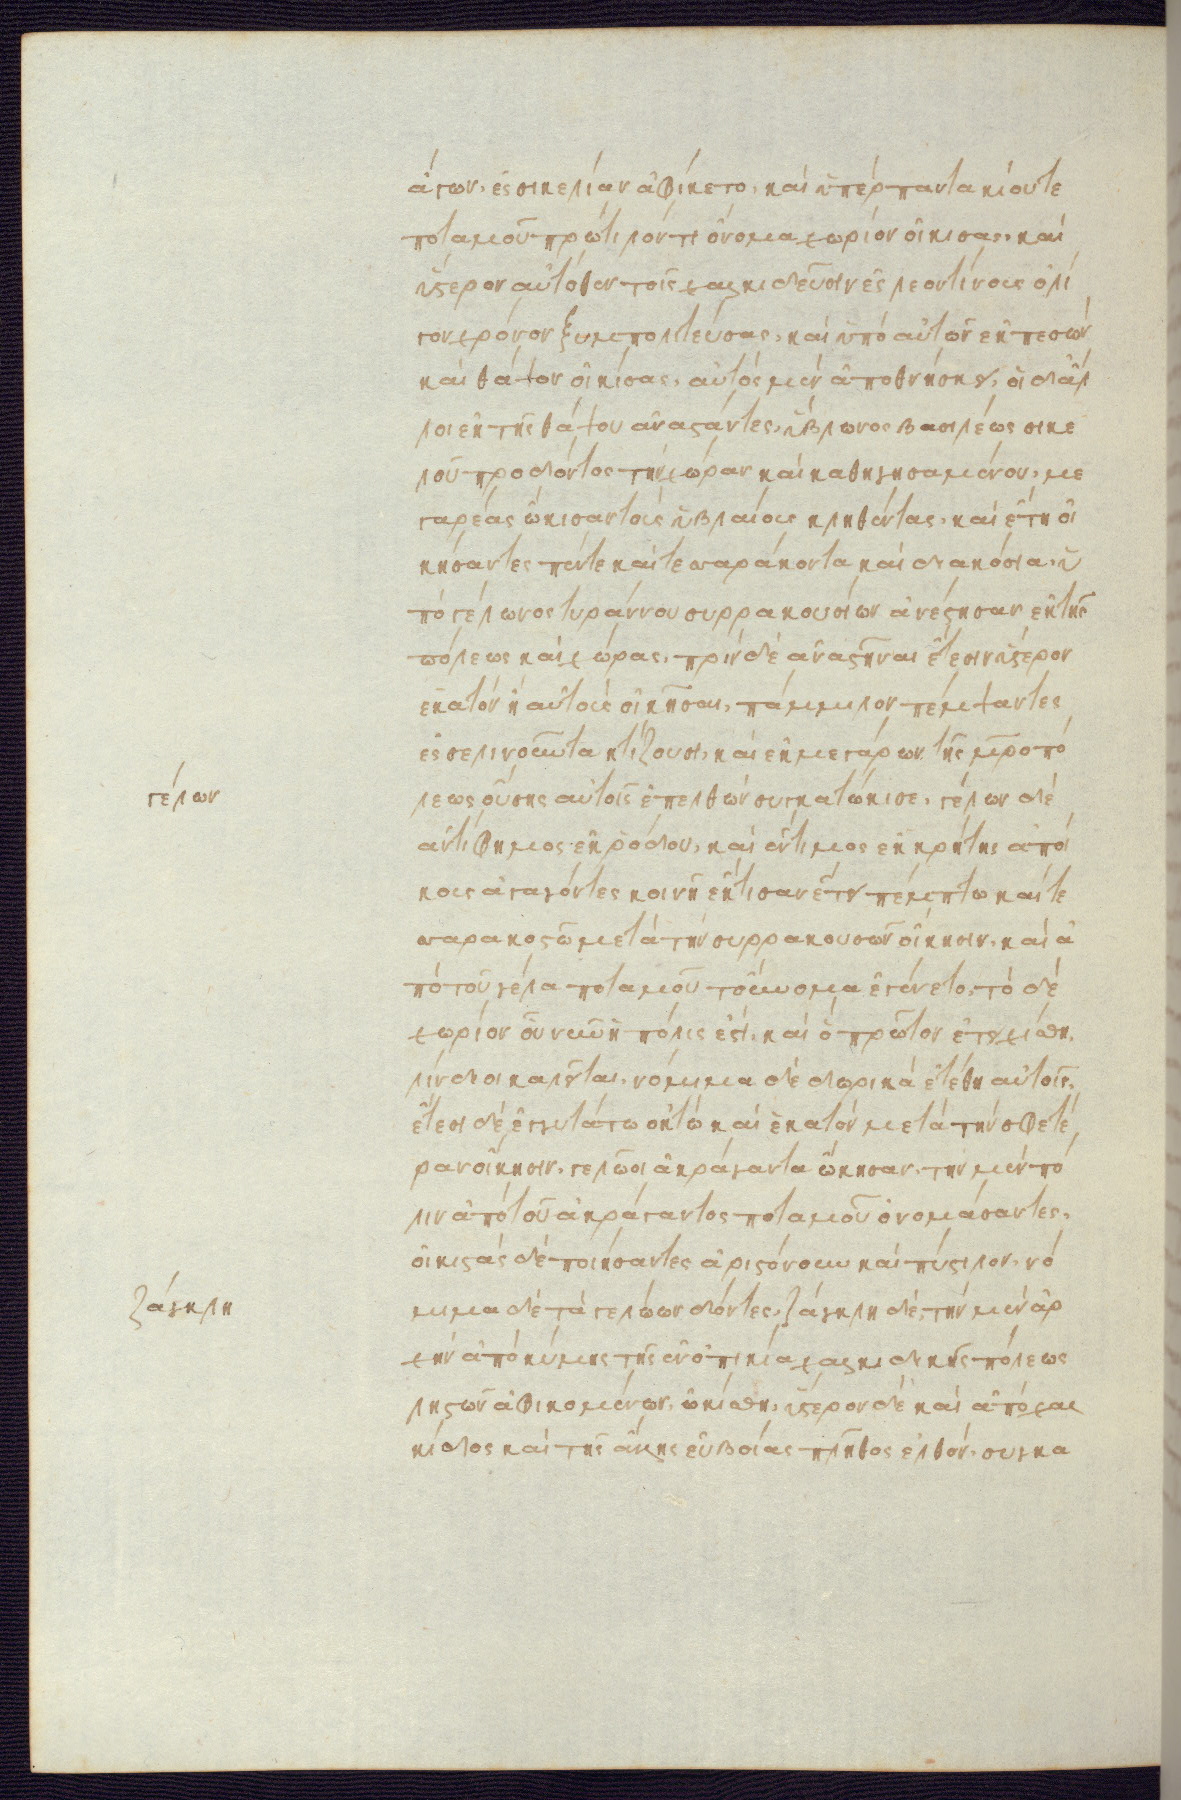 ἄγων, ἐς σικελίαν ἀφίκετο, καὶ ὑπὲρ παντακίου τε
ποταμοῦ πρώτιλόν τι ὄνομα χωρίον οἰκίσας, καὶ
ὕστερον αὐτόθεν τοῖς χαλκιδεῦσιν ἐς λεοντίνους ὀλί
γον χρόνον ξυμπολιτεύσας, καὶ ὑπὸ αὐτῶν ἐκπεσὼν
καὶ θάψον οἰκίσας, αὐτὸς μὲν ἀποθνήσκει, οἱ δ' ἄλ
λοι ἐκ τῆς θάψου ἀναστάντες, ὕβλωνος βασιλέως σικε
λοῦ προδόντος τὴν χώραν καὶ καθηγησαμένου, με
γαρέας ᾤκισαν τοὺς ὑβλαίους κληθέντας, καὶ ἔτη οἰ
κήσαντες πέντε καὶ τεσσαράκοντα καὶ διακόσια, ὑ
πὸ γέλωνος τυράννου συρρακουσίων ἀνέστησαν ἐκ τῆς
πόλεως καὶ χώρας, πρὶν δὲ ἀναστῆναι ἔτεσιν ὕστερον
ἑκατὸν ἢ αὐτοὺς οἰκῆσαι, πάμμιλον πέμψαντες
ἐς σελινοῦντα κτίζουσι, καὶ ἐκ μεγάρων τῆς μητροπό
λεως οὔσης αὐτοῖς ἐπελθὼν συγκατώκισε, γέλων δὲ
γέλων
ἀντίφημος ἐκ ῥόδου, καὶ ἔντιμος ἐκ κρήτης ἀποί
κους ἀγαγόντες κοινῇ ἔκτισαν ἔτει πέμπτω καὶ τε
σσαρακοστῶ μετὰ τὴν συρρακουσῶν οἴκησιν, καὶ ἀ
πὸ τοῦ γέλα ποταμοῦ τοὔνομα ἐγένετο, τὸ δὲ
χωρίον οὗ νῦν ἡ πόλις ἐστὶ, καὶ ὃ πρῶτον ἐτειχίσθη,
λίνδιοι καλεῖται, νόμιμα δὲ δωρικὰ ἐτέθη αὐτοῖς,
ἔτεσι δὲ ἐγγυτάτω ὀκτὼ καὶ ἑκατὸν μετὰ τὴν σφετέ
ραν οἴκησιν, γελῶοι ἀκράγαντα ᾤκησαν, τὴν μὲν πό
λιν ἀπὸ τοῦ ἀκράγαντος ποταμοῦ ὀνομάσαντες,
οἰκιστὰς δὲ ποιήσαντες ἀριστόνουν καὶ πύστιλον, νό
μιμα δὲ τὰ γελώων δόντες, ζάγκλη δὲ, τὴν μὲν ἀρ
ζάγκλη
χὴν ἀπὸ κύμης τῆς ἐν ὀπικία χαλκιδικῆς πόλεως
ληστῶν ἀφικομένων, ὠκίσθη, ὕστερον δὲ καὶ ἀπὸ χαλ
κίδος καὶ τῆς ἄλλης εὐβοίας πλῆθος ἐλθὸν, συγκα